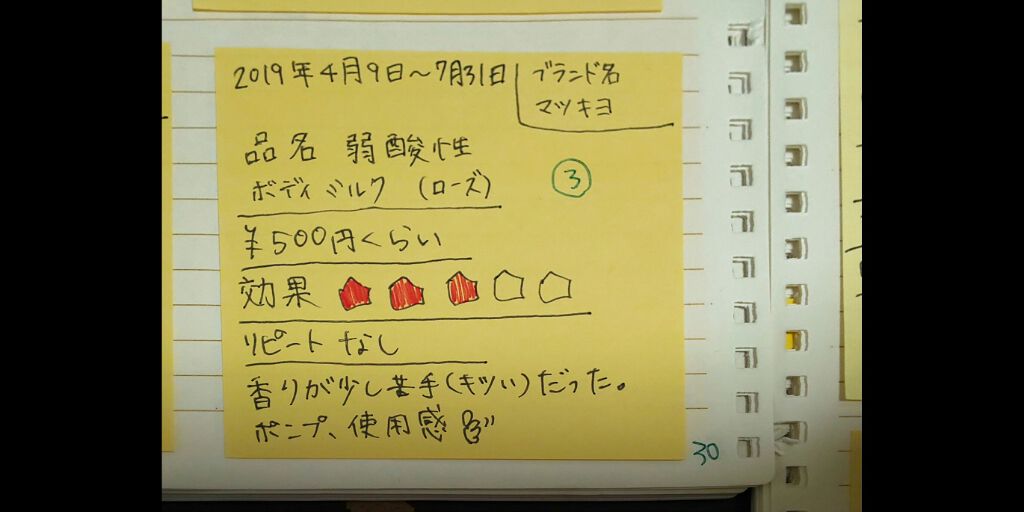 2019年4月9日～7月31日
ブランド名
マツキヨ
品名 弱酸性
ボディミルク (ローズ)
③
¥500円くらい
効果
リピートなし
香りが少し苦手(キツい)だった。
ポンプ、使用感
30